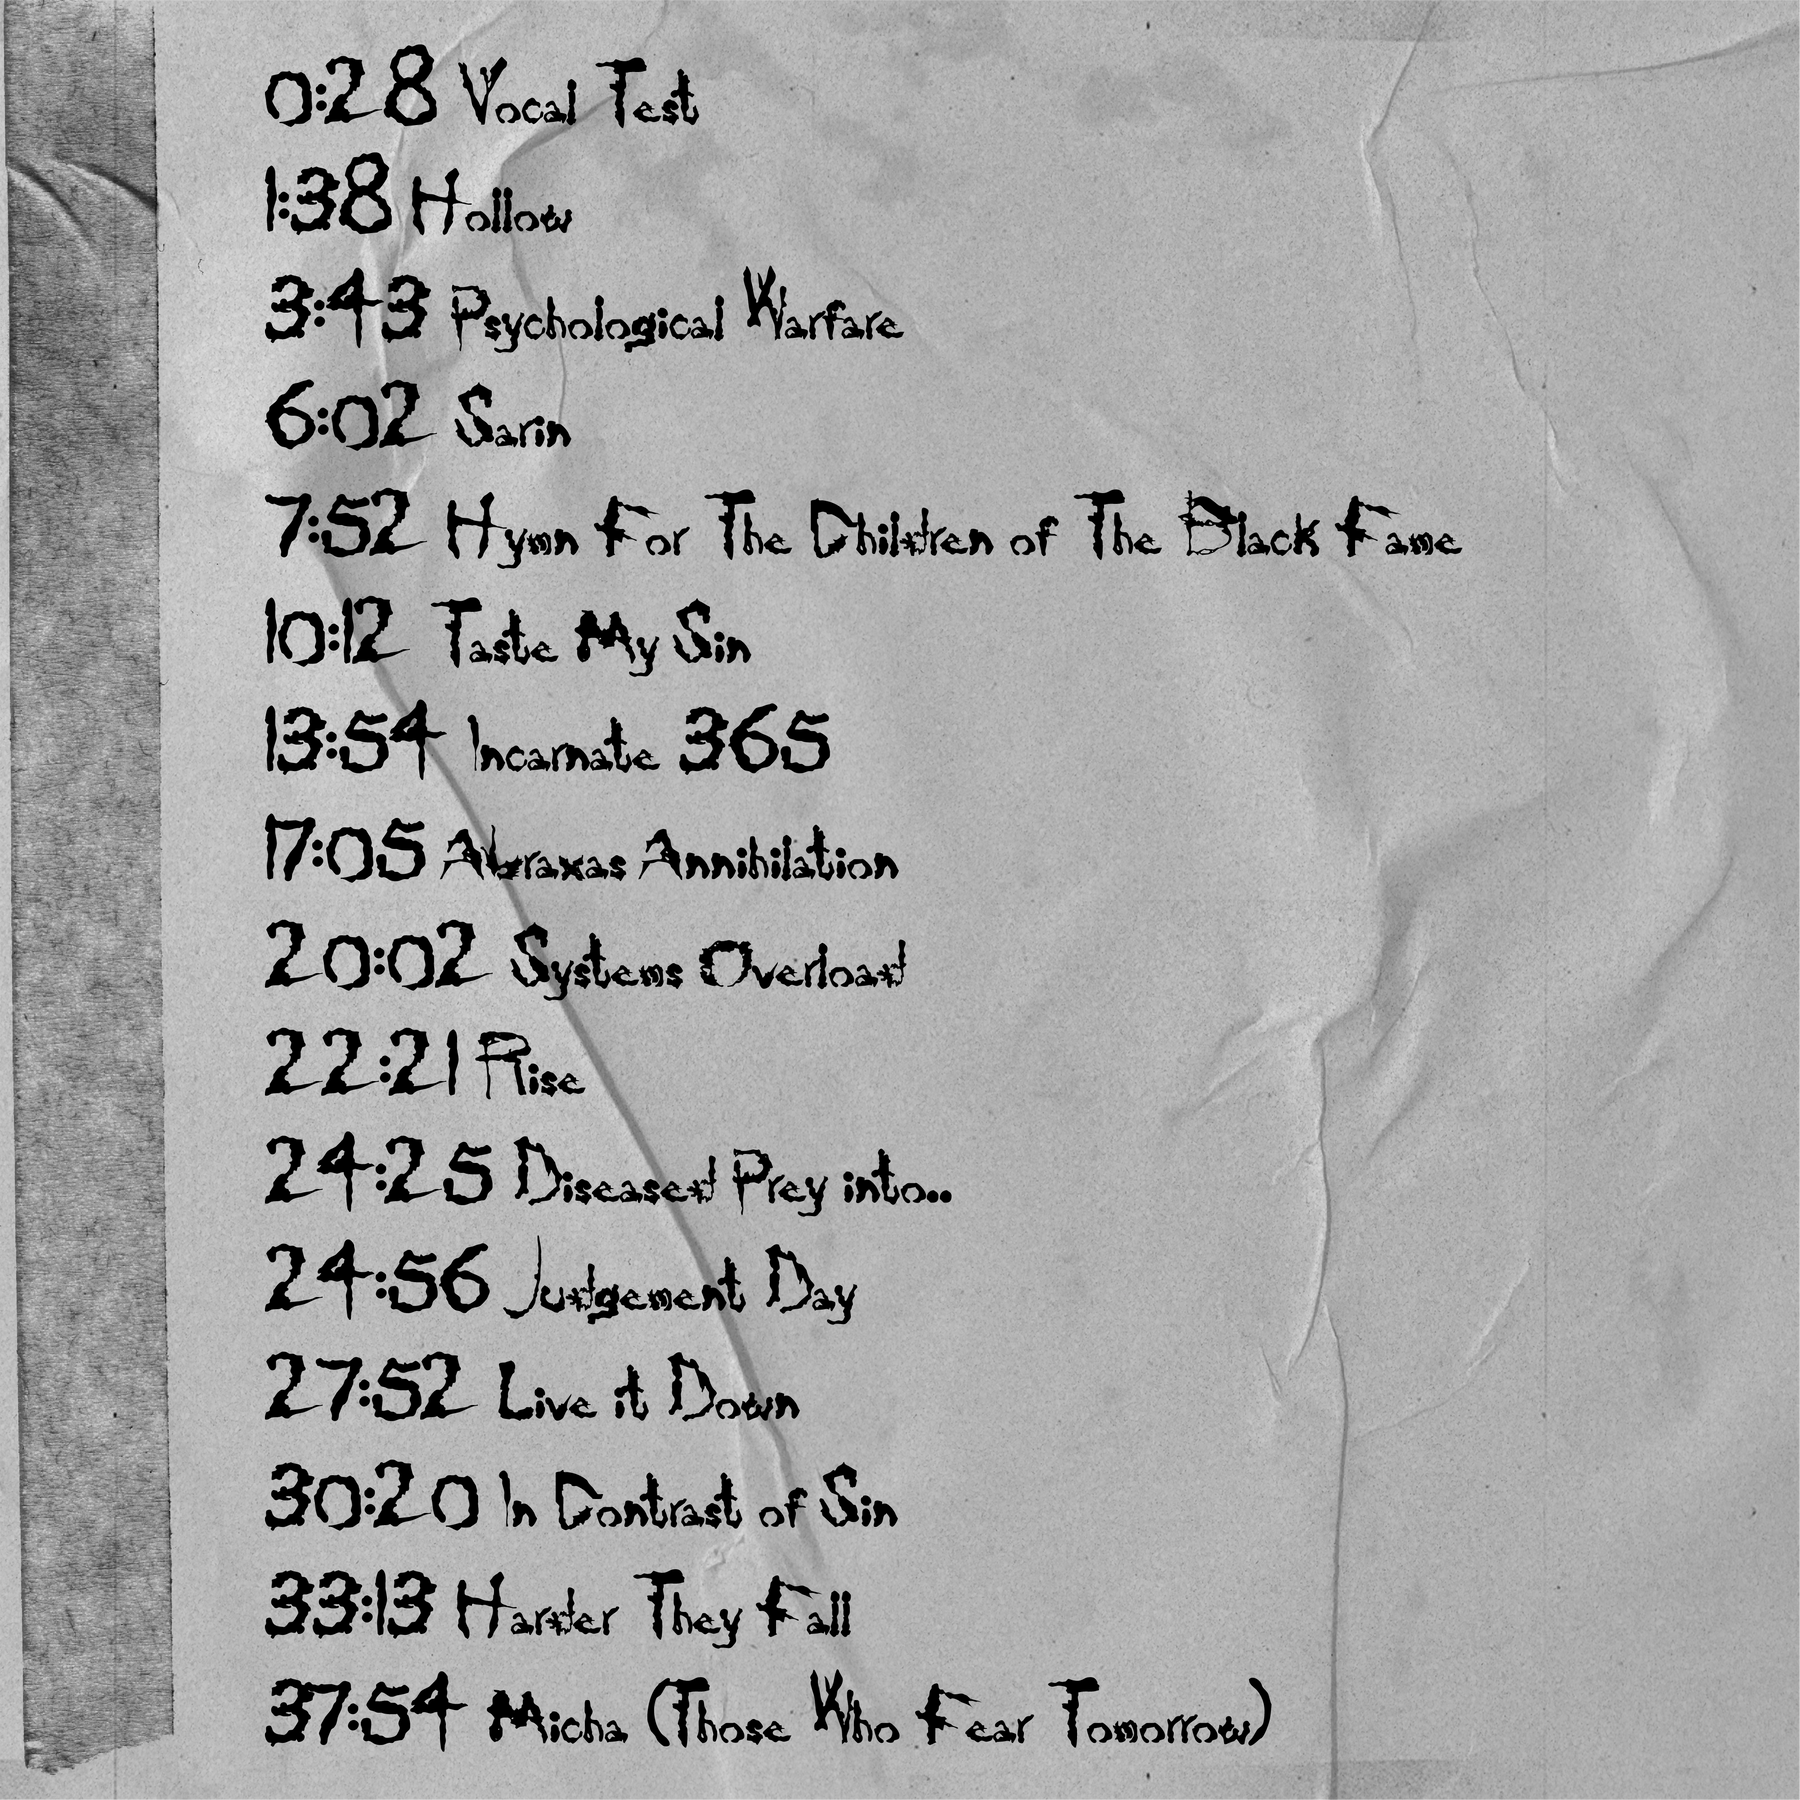 0:28 Vocal Test
1:38 Hollow
3:43 Psychological Warfare
6:02 Sarin
7:52 Hymn For The Children of The Black Fame
10:12 Taste My Sin
13:54 Incarnate 365
17:05 Abraxas Annihilation
20:02 Systems Overload
22:21 Rise
24:25 Diseased Prey into..
24:56 Judgement Day
27:52 Live it Down
30:20 In Contrast of Sin
33:13 Harder They Fall
37:54 Micha (Those Who Fear Tomorrow)